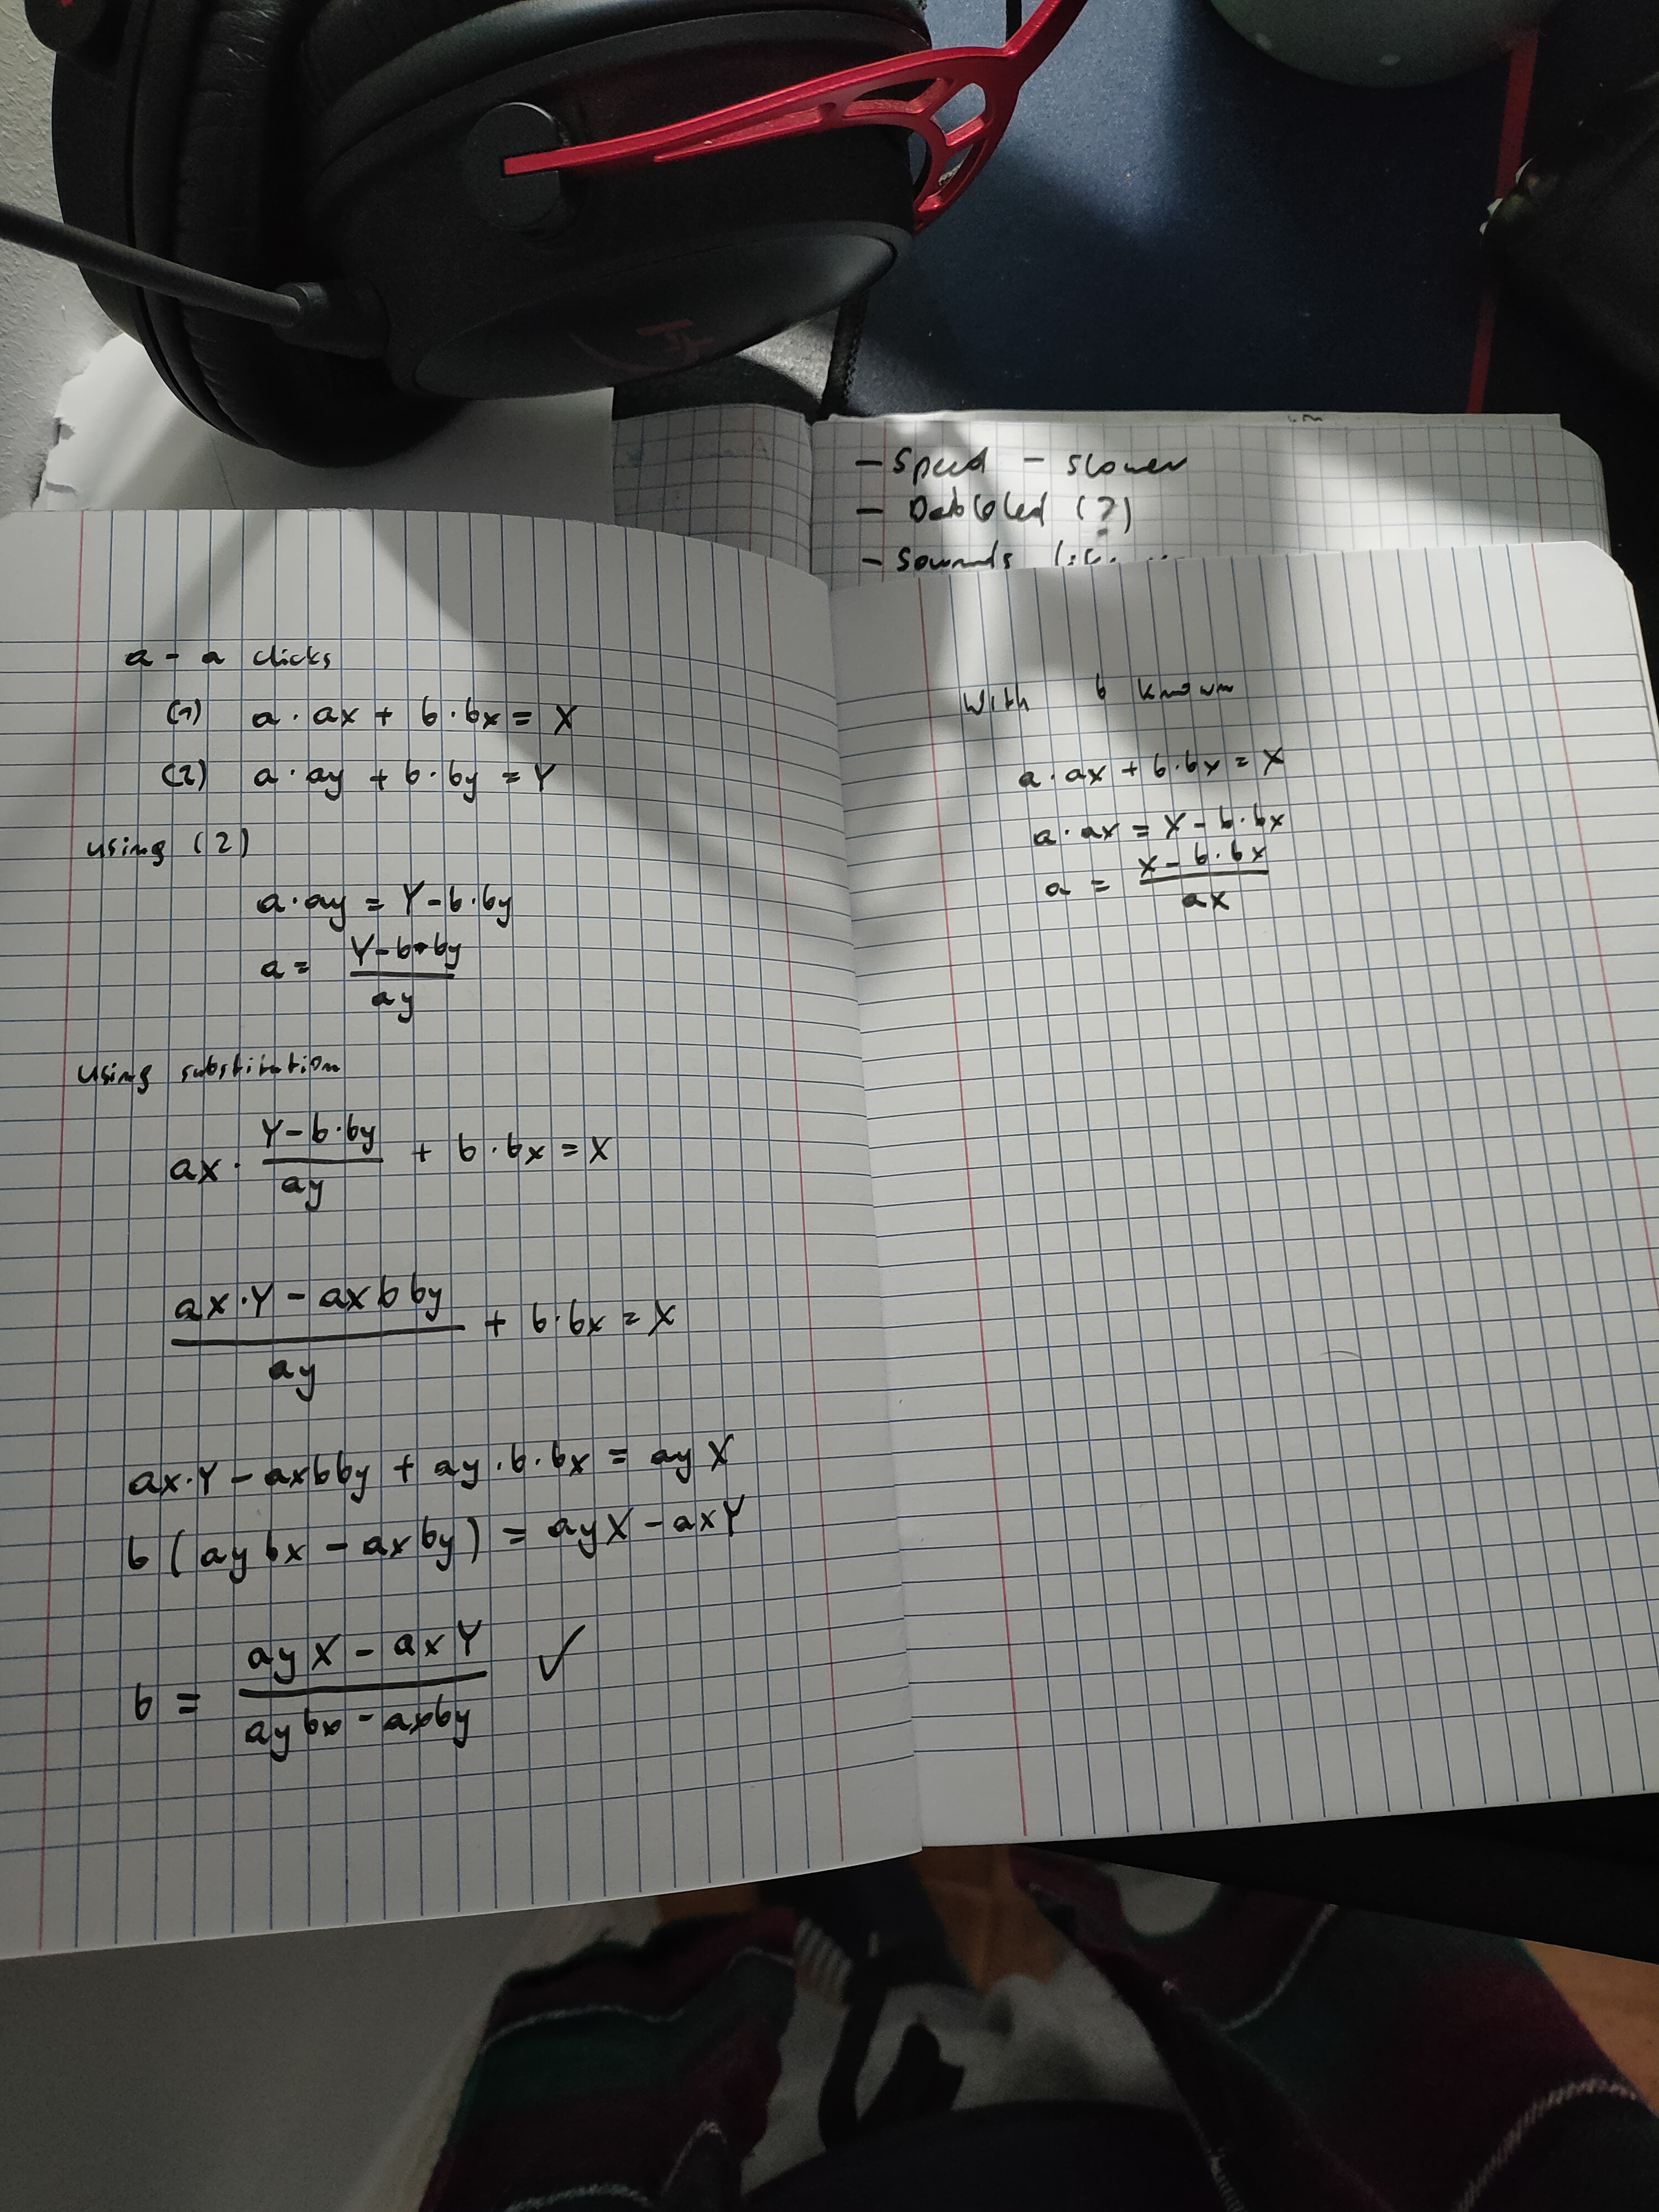 - Speed - slower
- Dabbled (?)
- Sounds
a - a clicks
(1) a · ax + b · bx = X
(2) a · ay + b · by = Y
using (2)
a · ay = Y - b · by
a = Y - b · by
ay
Using substitution
ax · Y - b · by + b · bx = X
ay
ax · Y - ax b by + b · bx = X
ay
ax · Y - axbby + ay · b · bx = ay X
b (ay bx - ax by) = ay X - ax Y
b = ay X - ax Y ✓
ay bx - axby
With b known
a · ax + b · bx = X
a · ax = X - b · bx
a = X - b · bx
ax